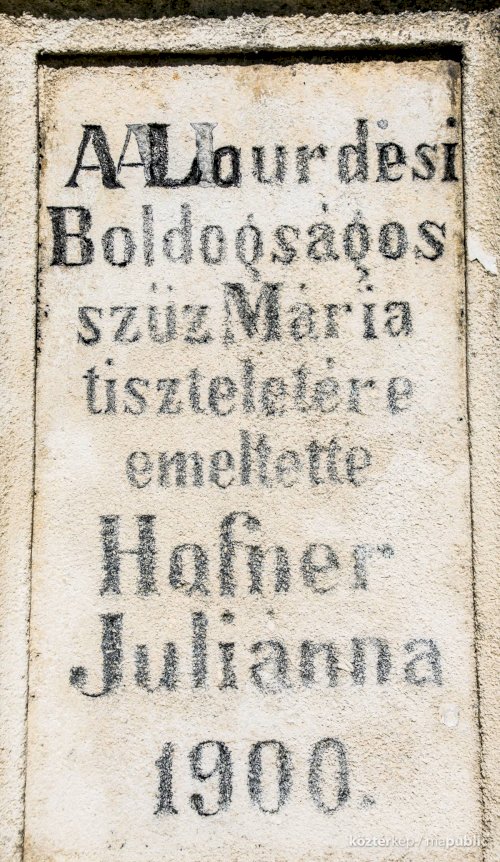 A Lourdesi
Boldogságos
szüz Mária
tiszteletére
emeltette
Hafner
Juliánna
1900.
köztérkép / mapublic